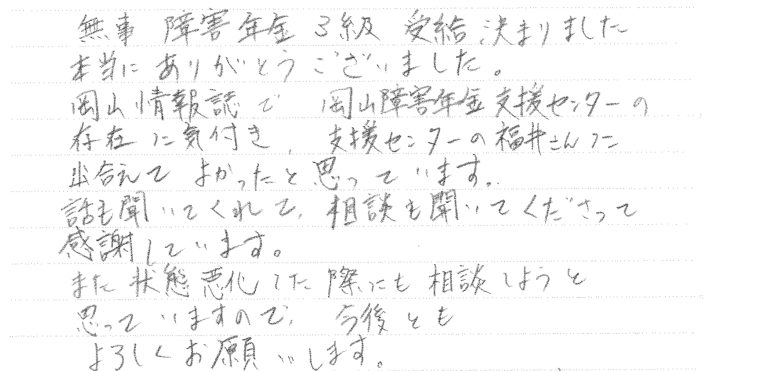 無事 障害年金 3級 受給 決まりました
本当に ありがとうございました。
岡山情報誌で 岡山障害年金支援センターの
存在に気付き、支援センターの福井さんに
出合えて よかったと思っています。
話も聞いてくれて、相談も聞いてくださって
感謝しています。
また 状態悪化した際にも相談しようと
思っていますので、今後とも
よろしくお願いします。